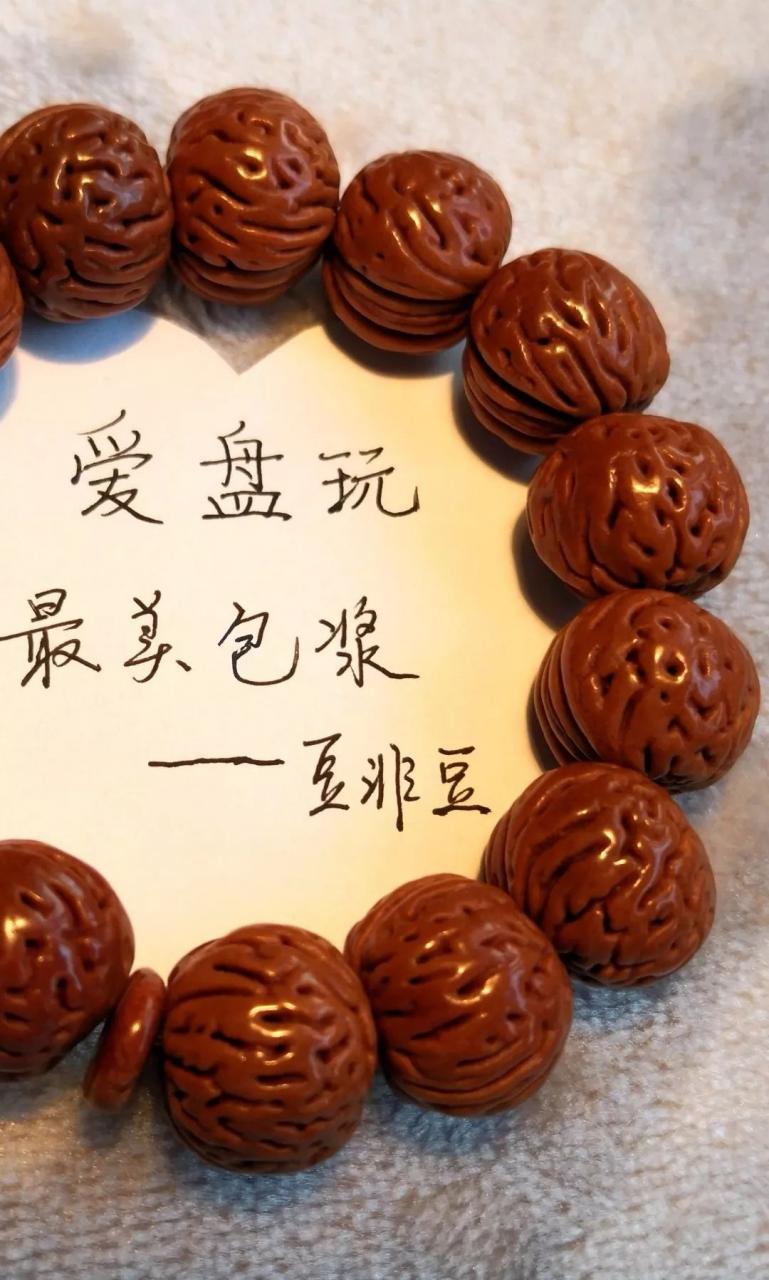 爱盘玩
最美包浆
——豆非豆